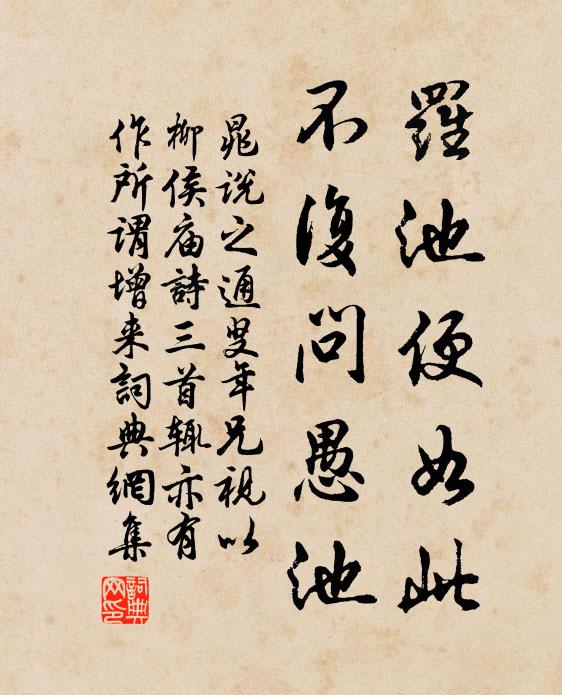 羅池便如此
不復問愚池
晁说之通叟年兄視以
柳侯庙詩三首辄亦有
作所谓增来詞典網集
詞典
网印